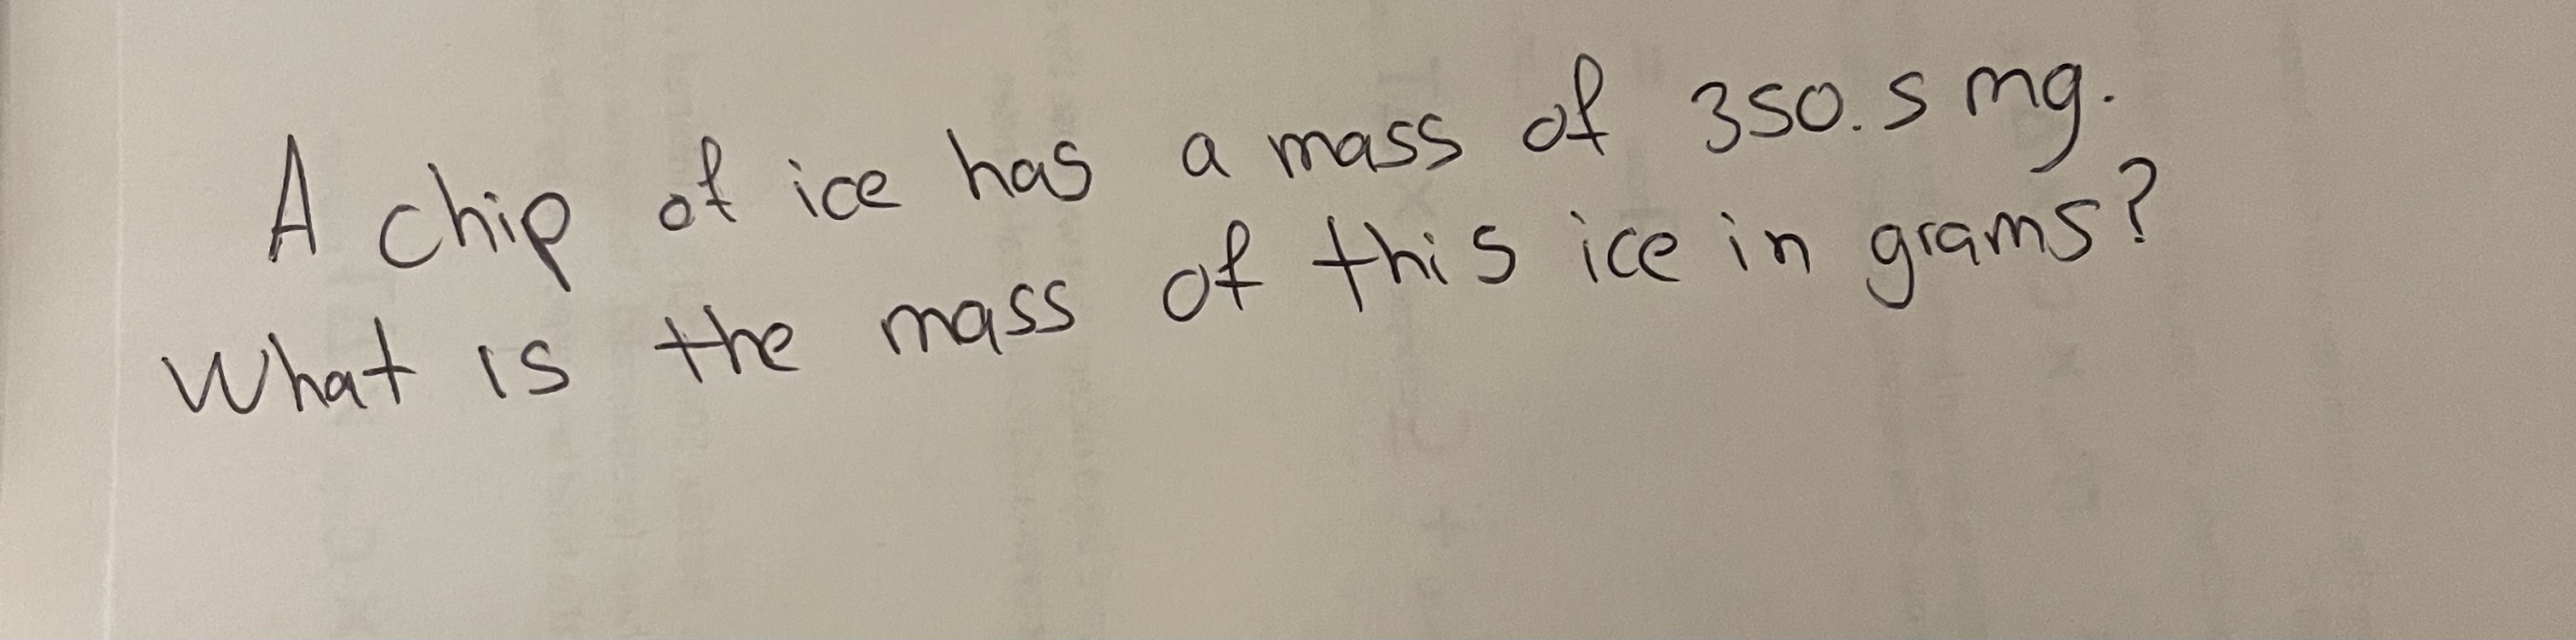 A chip of ice has a mass of 350.5 mg.
What is the mass of this ice in grams?